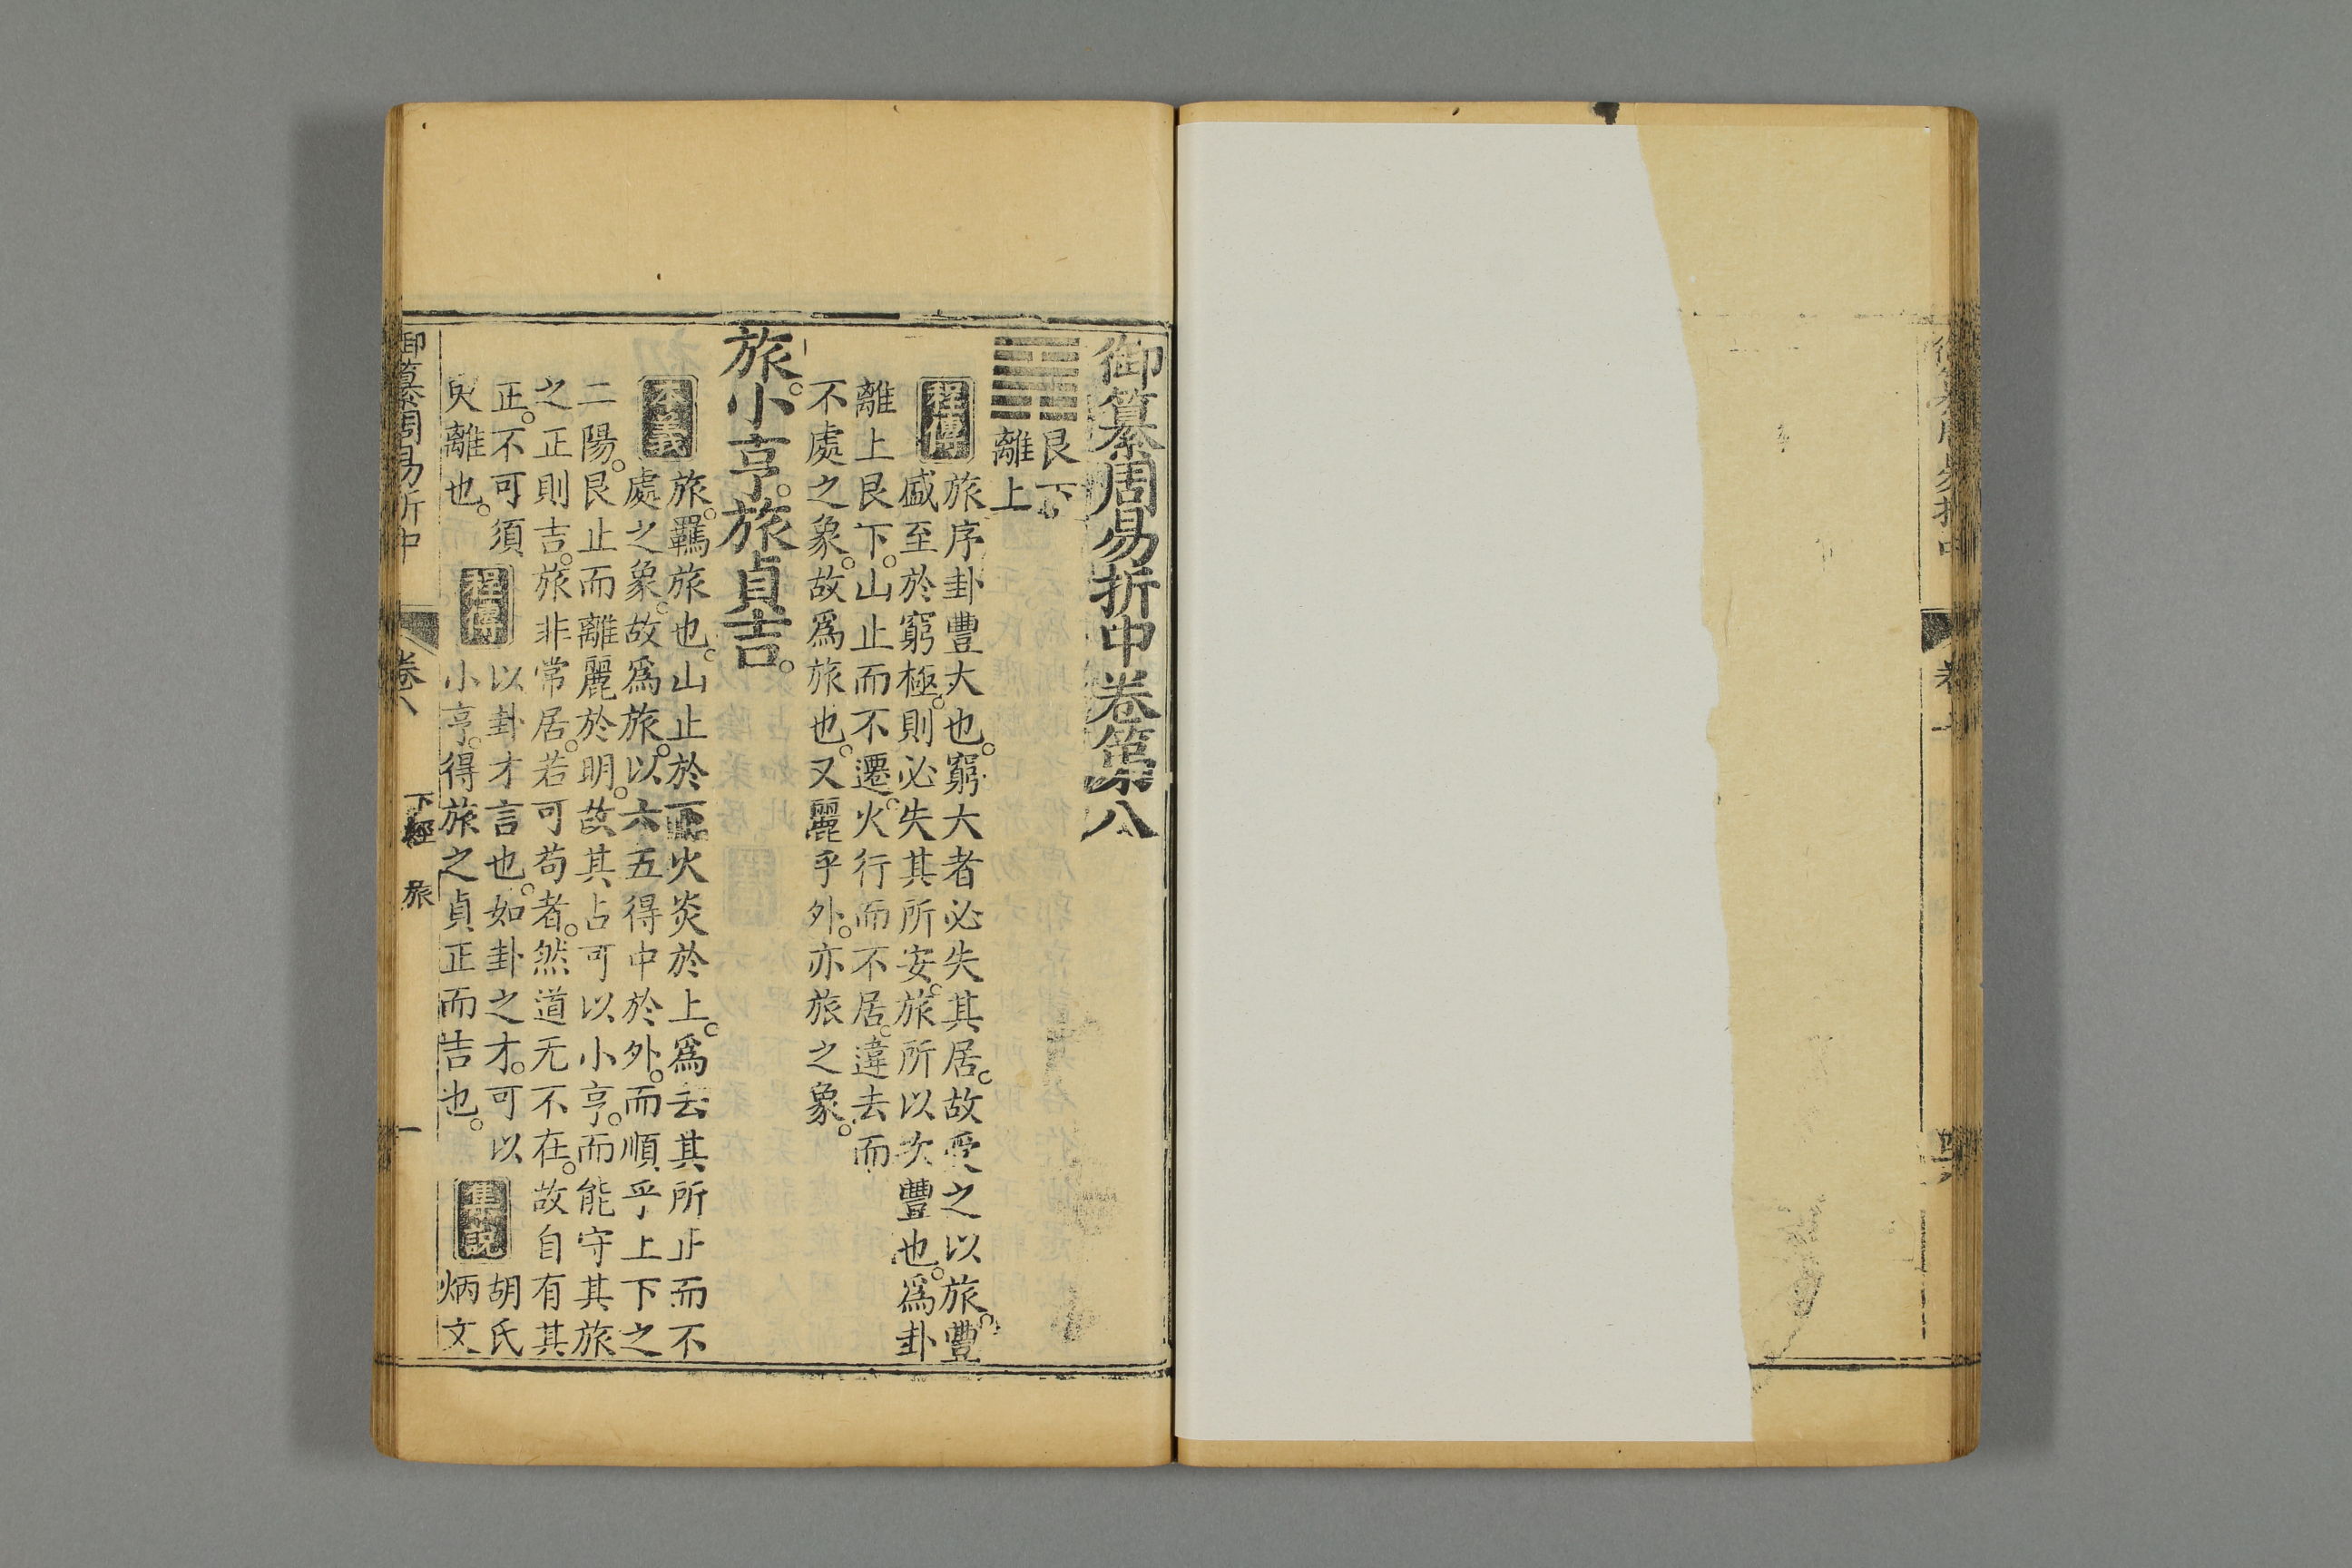 御纂周易折中卷第八
艮下
離上
程傳
旅序卦豐大也。窮大者必失其居。故受之以旅。豐
盛至於窮極。則必失其所安。旅所以次豐也。爲卦
離上艮下。山止而不遷。火行而不居。違去而
不處之象。故爲旅也。又麗乎外。亦旅之象。
旅。小亨。旅貞吉。
本義
旅。羈旅也。山止於下。火炎於上。爲去其所止而不
處之象。故爲旅。以六五得中於外。而順乎上下之
二陽。艮止而離麗於明。故其占可以小亨。而能守其旅
之正則吉。旅非常居。若可苟者。然道无不在。故自有其
正。不可須
臾離也。
程傳
以卦才言也。如卦之才。可以
小亨。得旅之貞正而吉也。
集說
胡氏
炳文
御纂周易折中
卷八
下經
旅
一